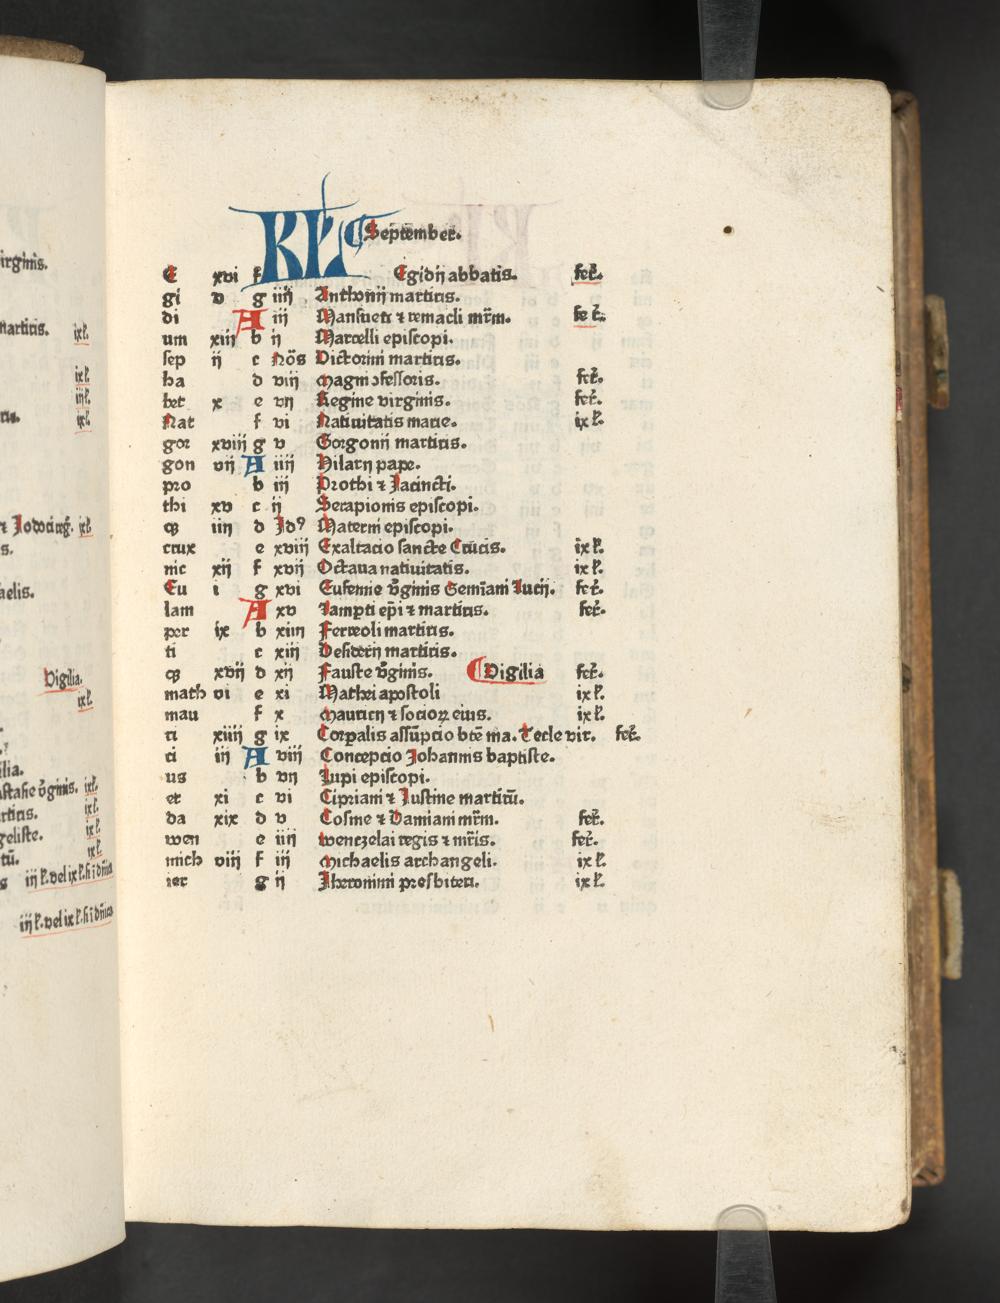 irginis.
martiris. ix l̃.
ix l̃.
iij l̃.
ris. ix l̃.
ix l̃.
s.
aelis.
Vigilia.
ix l̃.
ilia.
ix l̃.
rtiris. ix l̃.
geliste. ix l̃.
tũ. ix l̃.
s iij l̃. vel ix l̃. si ĩ dñica
iij l̃. vel ix l̃. si ĩ dñica
KL̃ September.
E xvi f Egidij abbatis. fer̃.
gi v g iiij Anthonij martiris.
di A iij Mansueti ⁊ remacli mr̃m. fer̃.
um xiij b ij Marcelli episcopi.
sep ij c Nõs Victorini martiris.
ba d viij Magni ↄfessoris. fer̃.
bet x e vij Regine virginis. fer̃.
Nat f vi Natiuitatis marie. ix l̃.
gor xviij g v Gorgonij martiris.
gon vij A iiij Hilarij pape.
pro b iij Prothi ⁊ Jacincti.
thi xv c ij Serapionis episcopi.
qꝫ iiij d Jdꝰ Materni episcopi.
crux e xviij Exaltacio sancte Crucis. ix l̃.
nic xij f xvij Octaua natiuitatis. ix l̃.
Eu i g xvi Eufemie v̄ginis Geminiani Lucij. fer̃.
lam A xv Lamperti ep̃i ⁊ martiris. fer̃.
per ix b xiiij Ferreoli martiris.
ti c xiij Desiderij martiris.
qꝫ xvij d xij Fauste v̄ginis. Vigilia fer̃.
math vi e xi Mathei apostoli ix l̃.
mau f x Mauricij ⁊ socioꝝ eius. ix l̃.
ri xiiij g ix Corꝑalis assũpcio btẽ ma. Tecle vir. fer̃.
ci iij A viij Concepcio Johannis baptiste.
us b vij Lupi episcopi.
et xi c vi Cipriani ⁊ Justine martirũ.
da xix d v Cosme ⁊ Damiani mr̃m. fer̃.
wen e iiij wenczelai regis ⁊ mr̃is. fer̃.
mich viij f iij Michaelis archangeli. ix l̃.
ier g ij Jheronimi presbiteri. ix l̃.